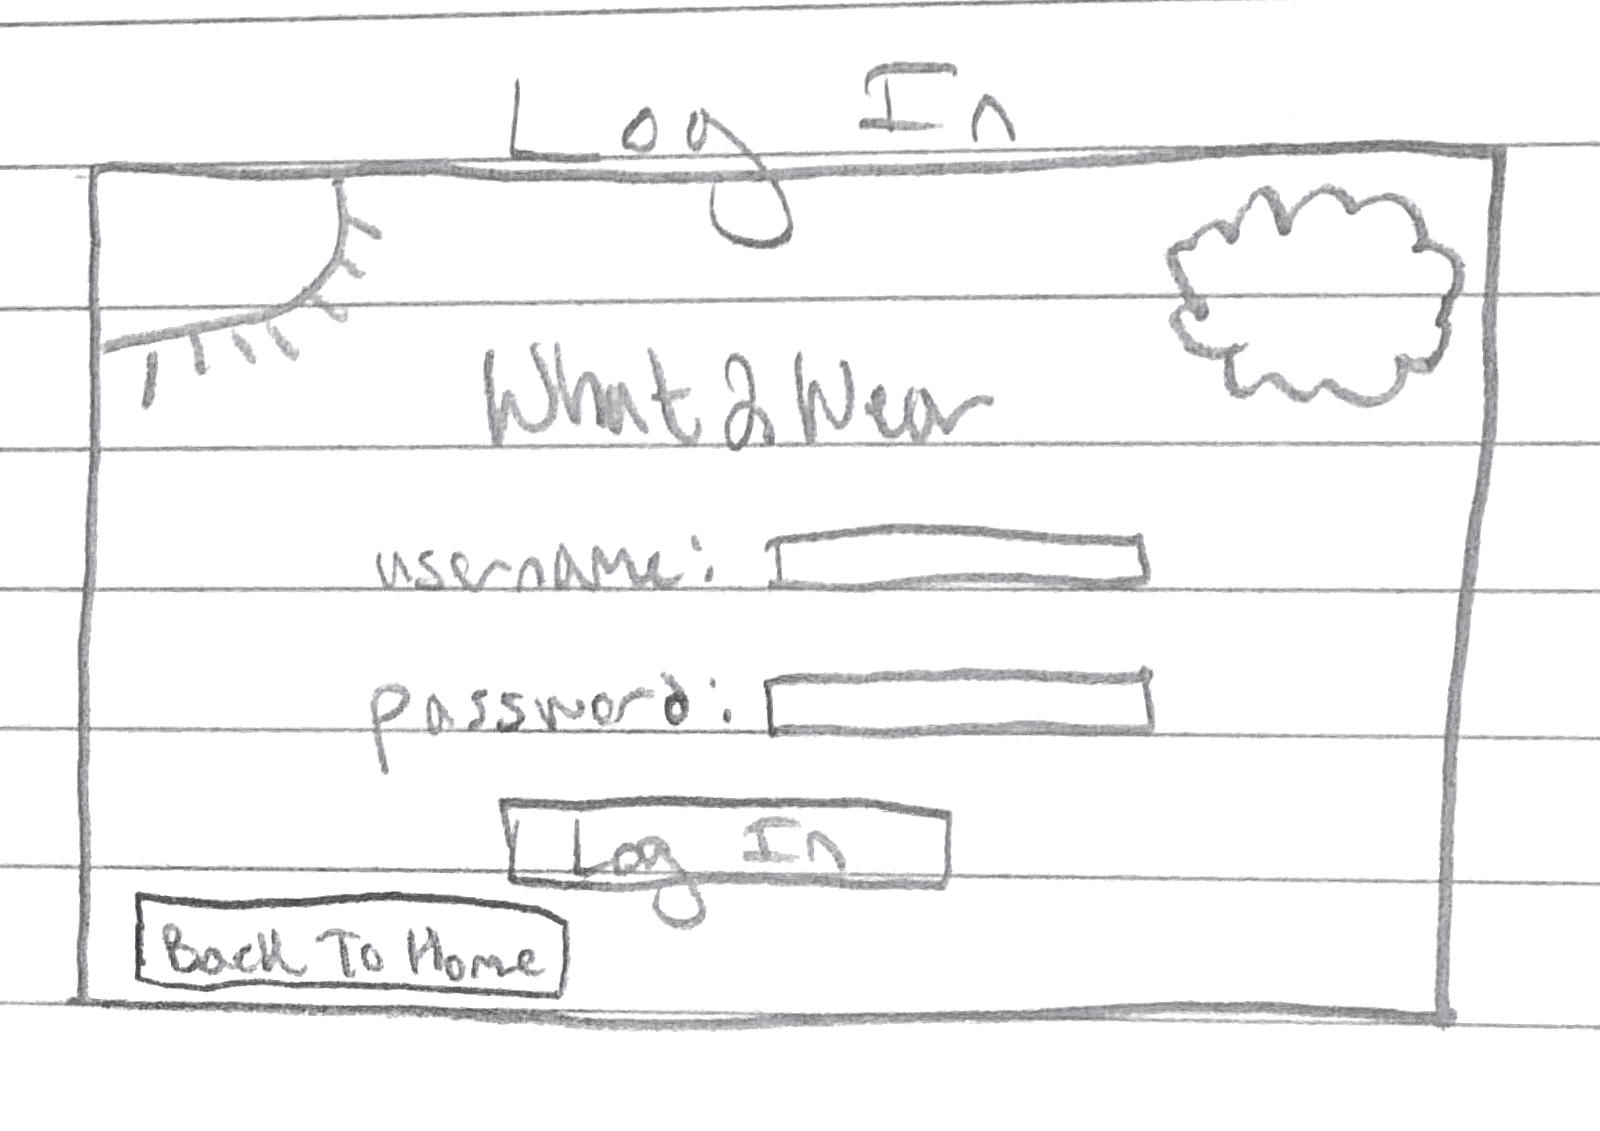 Log In
What 2 Wear
username:
password:
Log In
Back To Home